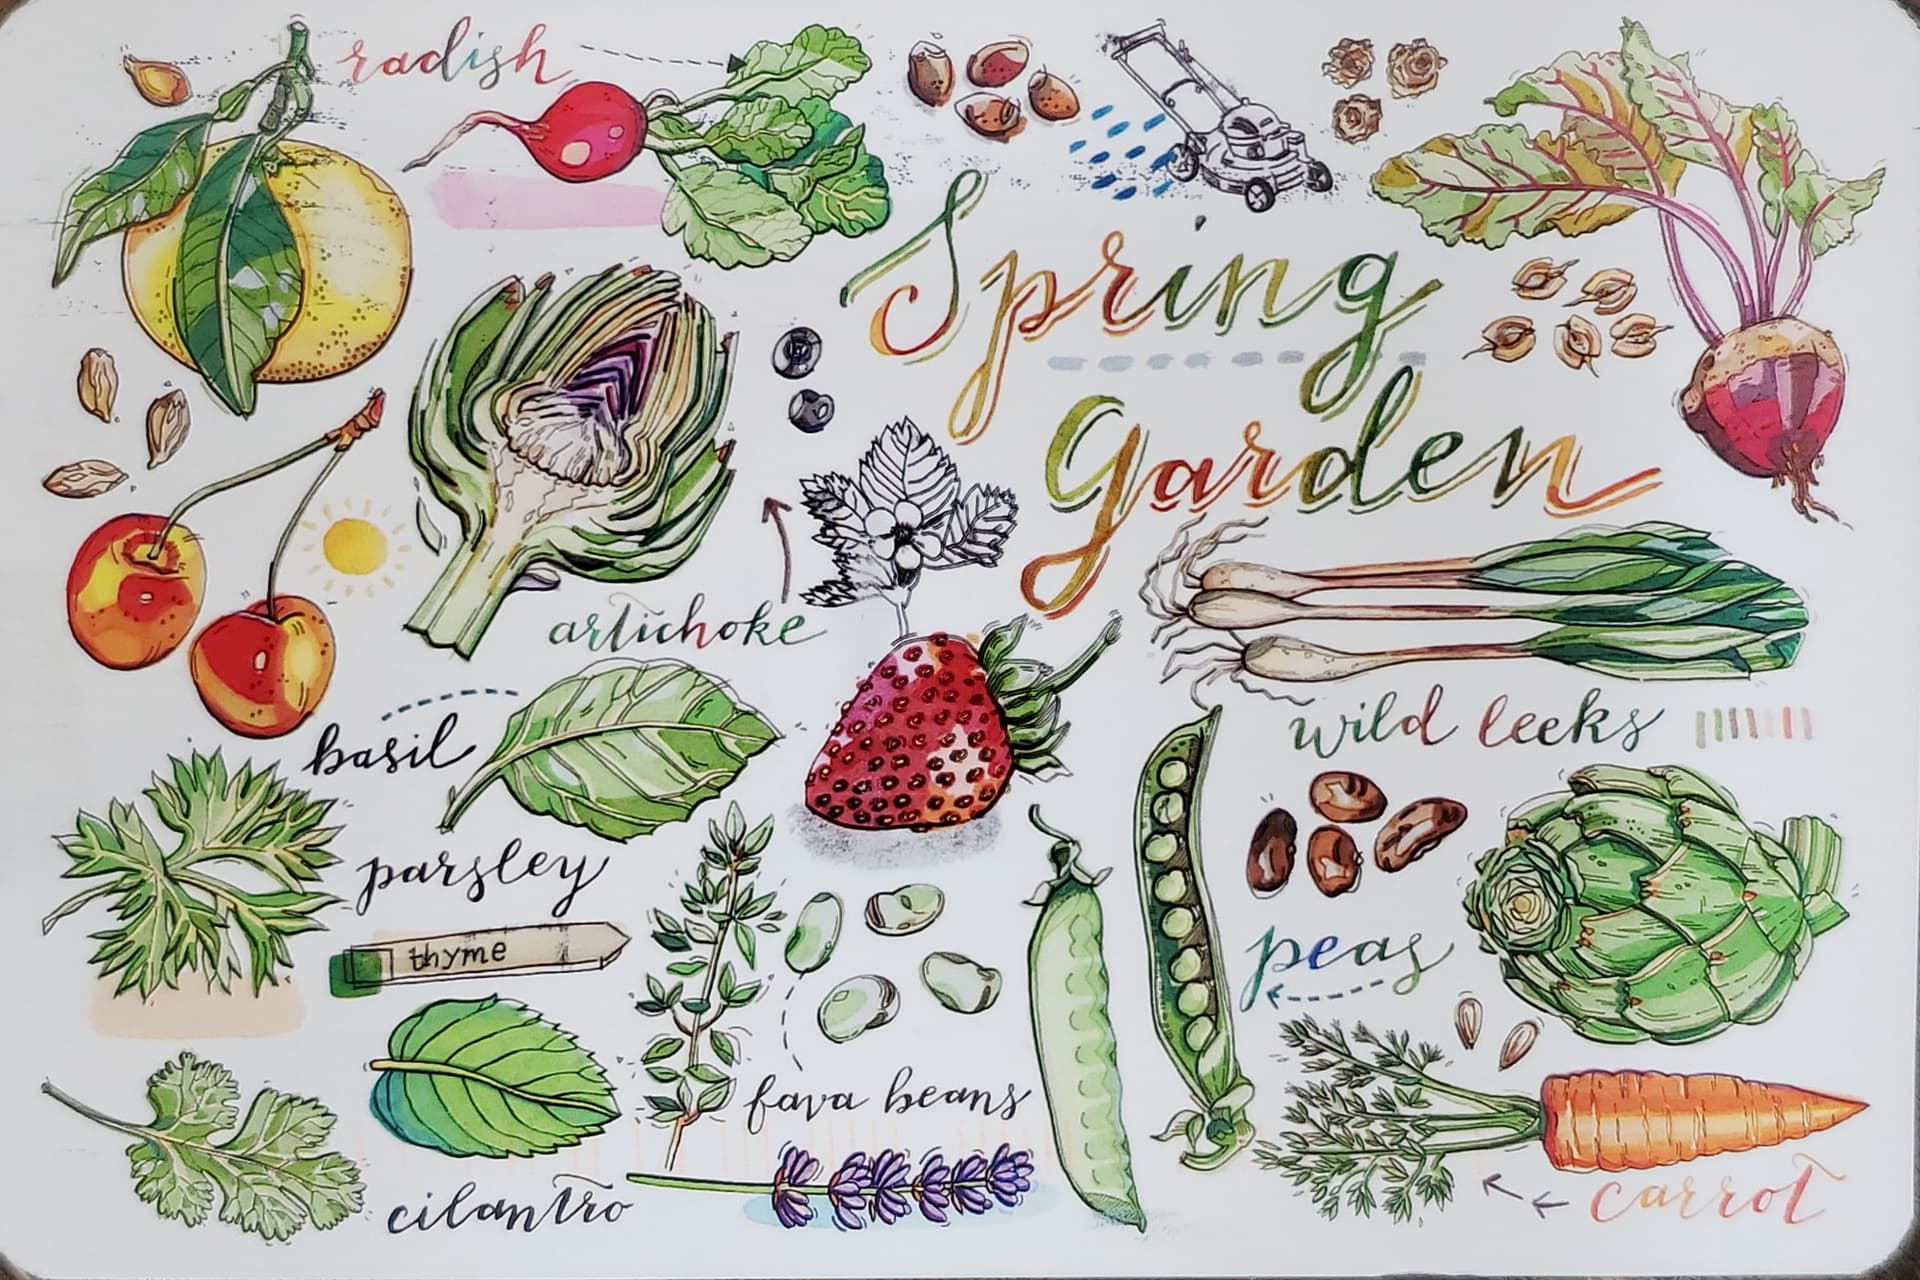 radish
Spring
Garden
artichoke
basil
wild leeks
parsley
thyme
peas
fava beans
cilantro
carrot